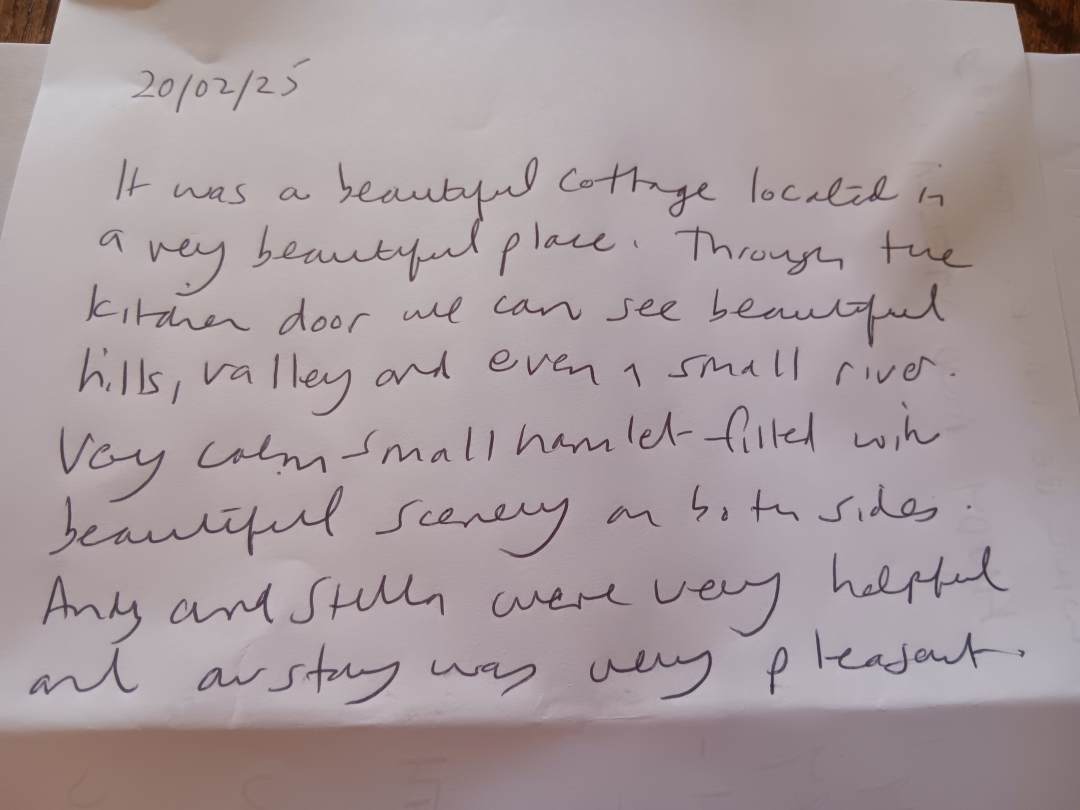 20/02/25
It was a beautiful cottage located in
a very beautiful place. Through the
kitchen door we can see beautiful
hills, valley and even a small river.
Very calm small hamlet filled with
beautiful scenery on both sides.
Andy and Stella were very helpful
and our stay was very pleasant.